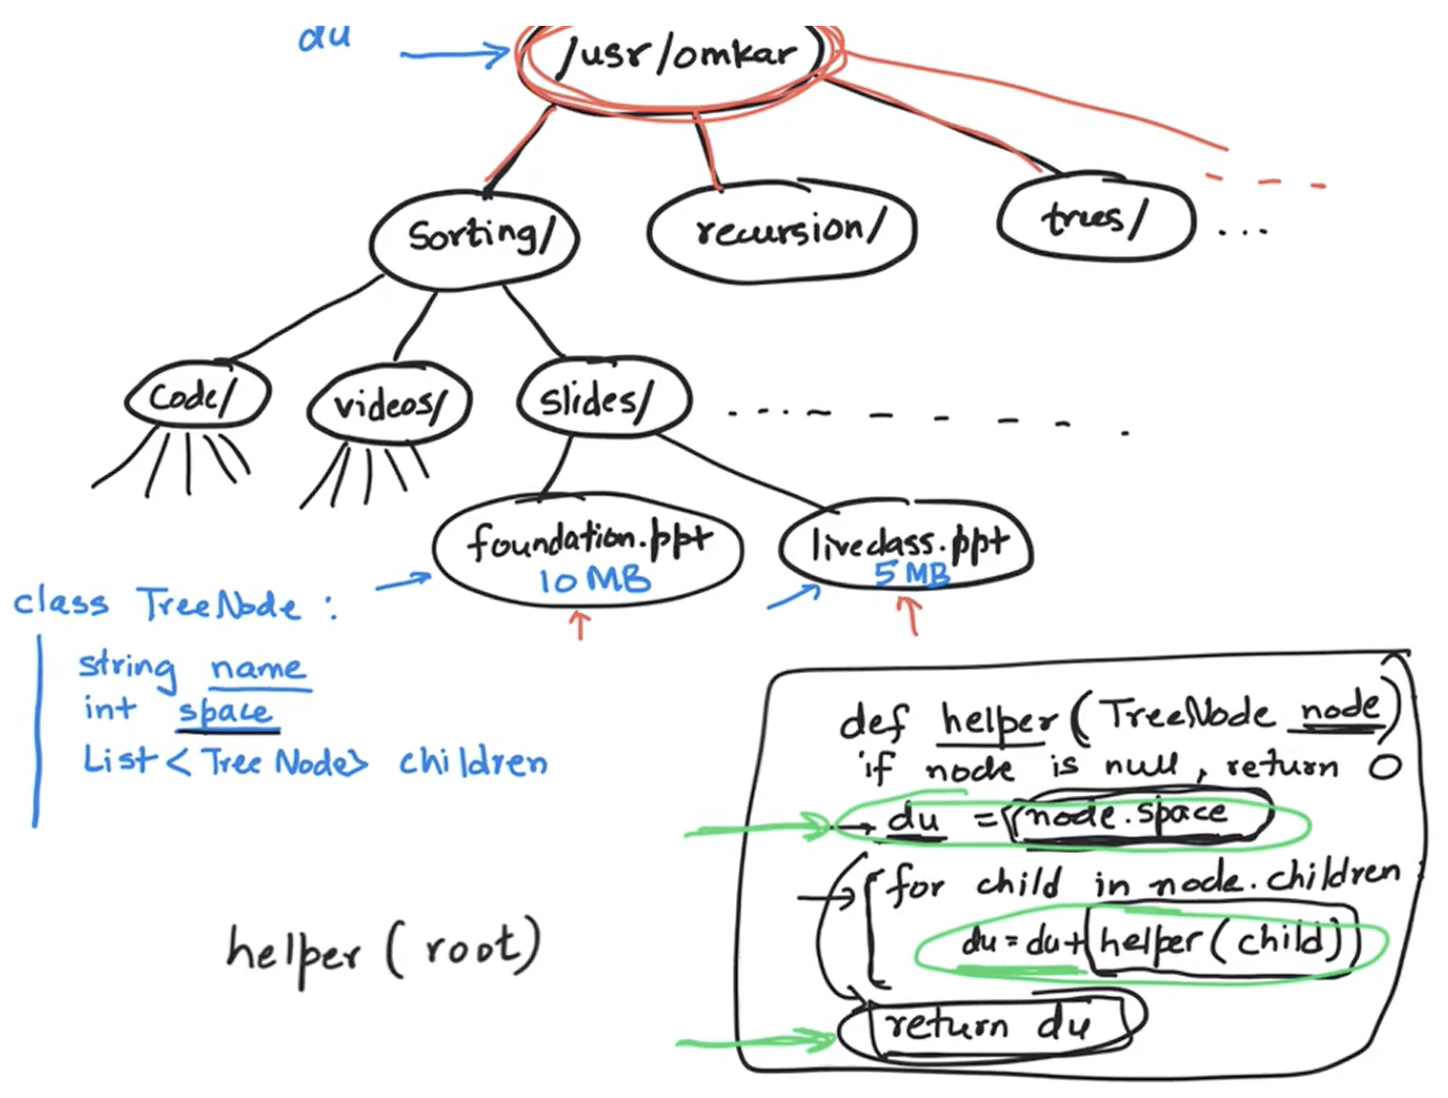 du
/usr/omkar
Sorting/ recursion/ trees/ ...
Code/ videos/ slides/
foundation.ppt liveclass.ppt
10 MB 5 MB
class TreeNode :
string name
int space
List <TreeNode> children
def helper (TreeNode node)
if node is null, return 0
du = node.space
for child in node.children :
du = du + helper (child)
return du
helper ( root)